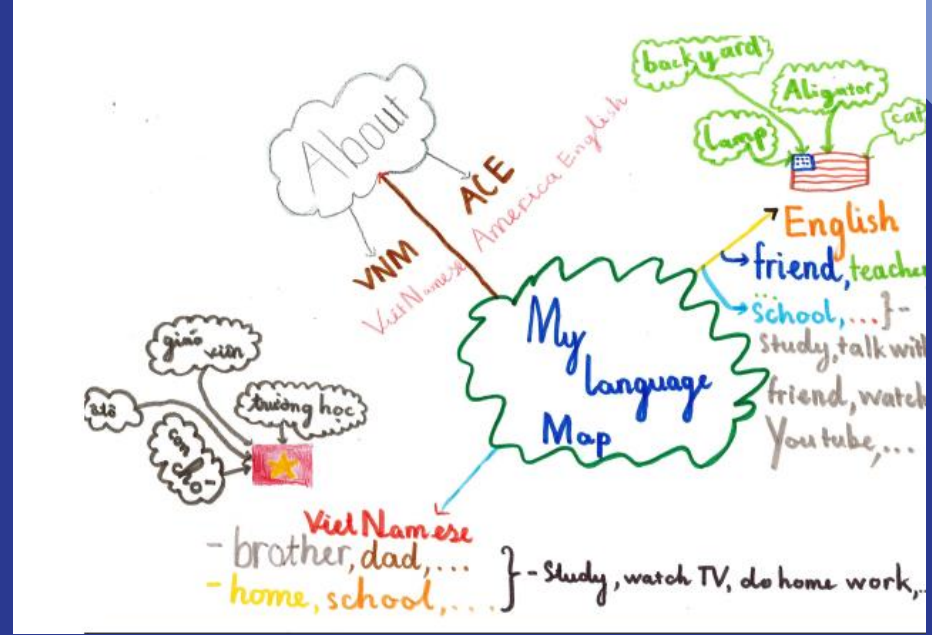 About
ACE
VNM
VietNamese America English
backyard
Aligator
Lamp
cat
English
friend, teache
...
School,...} -
Study, talk with
friend, watch
Youtube,...
My
language
Map
giáo
viên
trường học
con
chó
VietNamese
- brother, dad,...
- home, school,...
} - Study, watch TV, do home work,..